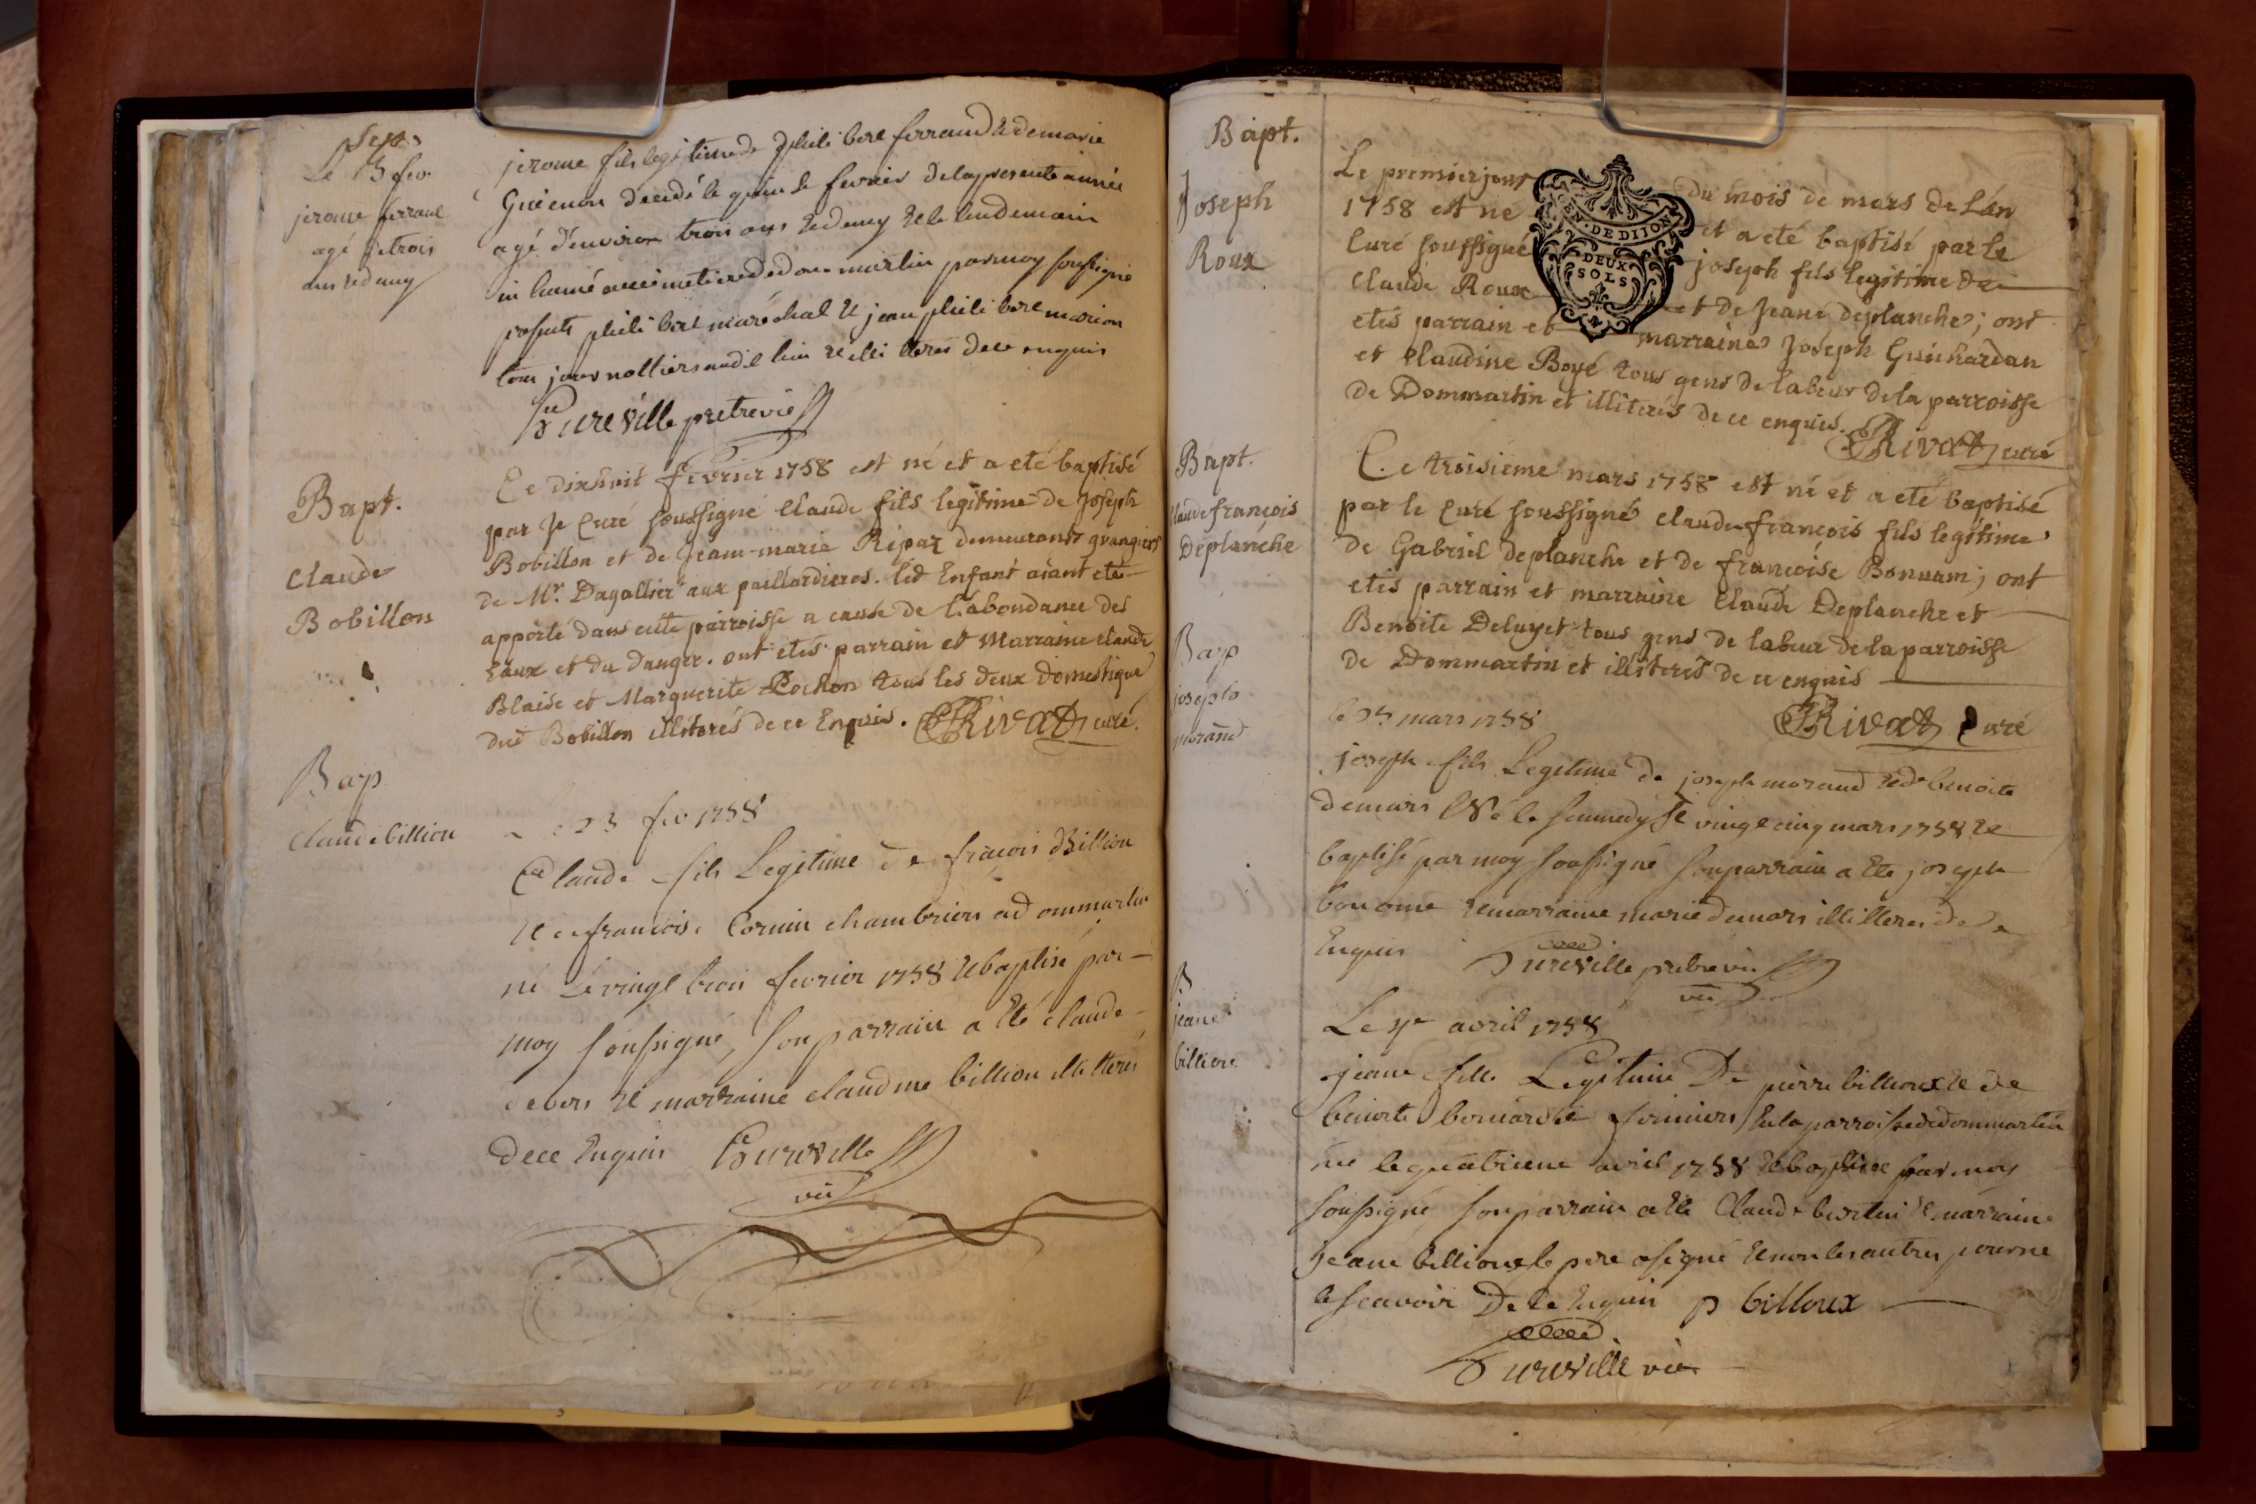 Sep.
Le 15 fev.
jerome ferraud
agé de trois
ans et demy
jerome fils legitime de philibert ferraud et de marie
Guienon decedé le quinze fevrier de la presente année
agé d'environ trois ans et demy et le lendemain
in humé au cimetiere de dommartin par moy soussigné
presents philibert maréchal et jean philibert marion
tous jour nalliers audit lieu et illiteres de ce enquis
Cureville pretre vic
Bapt.
Claude
Bobillon
Le dixhuit fevrier 1758 est né et a eté baptisé
par le Curé soussigné Claude fils legitime de Joseph
Bobillon et de Jeanne-marie Ripaz demeurants grangiers
de Mr. Dagallier aux paillardieres. led Enfant aïant eté
apporté dans cette parroisse a cause de l'abondance des
Eaux et du danger. ont etés parrain et Marraine claude
Blaise et Marguerite Pochon tous les deux domestique
dud Bobillon illiterés de ce Enquis. Rivat curé.
Bap
Claude billion
23 fev 1758
Claude fils Legitime de francois Billion
et de francoise Cornin chambriers a dommartin
né Le vingt trois fevrier 1758 et baptisé par
moy soussigné, son parrain a Eté claude
devers et marraine claudine billion illiteres
de ce Enquis Cureville
vic
Bapt.
Joseph
Roux
EN. DE DIJON
DEUX
SOLS
Le premier jour du mois de mars de L'an
1758 est né et a eté baptisé par le
Curé soussigné joseph fils legitime de
Claude Roux et de Jeane deplanche; ont
etés parrain et marraine Joseph Guichardan
et Claudine Boyé tous gens de labeur de la parroisse
de Dommartin et illiterés de ce enquis.
Rivat curé
Bapt.
Claude françois
Deplanche
Le troisieme mars 1758 est né et a eté baptisé
par le Curé soussigné claude françois fils legitime
de Gabriel deplanche et de françoise Bonnam; ont
etés parrain et marraine Claude Deplanche et
Benoite Deluyet tous gens de labeur de la parroisse
de Dommartin et illiterés de ce enquis
Rivat Curé
Bap
joseph
morand
le 25 mars 1758
joseph fils Legitime de joseph morand et de benoite
demars Né le samedy vingt cinq mars 1758 et
baptisé par moy soussigné son parrain a Eté joseph
bonome et marraine marie demars illiteres de ce
Enquis Cureville pretre vic
vic
B
jeane
billion
Le 4e avril 1758
jeane fille Legitime De pierre billioux et de
benoite bernardet fermiers en la parroisse de dommartin
née le quatrieme avril 1758 et baptisee par moy
soussigné son parrain a Eté Claude bertin et marraine
jeane billioux le pere a signé et non les autres pour ne
le scavoir De ce Enquis p billoux
Cureville vic